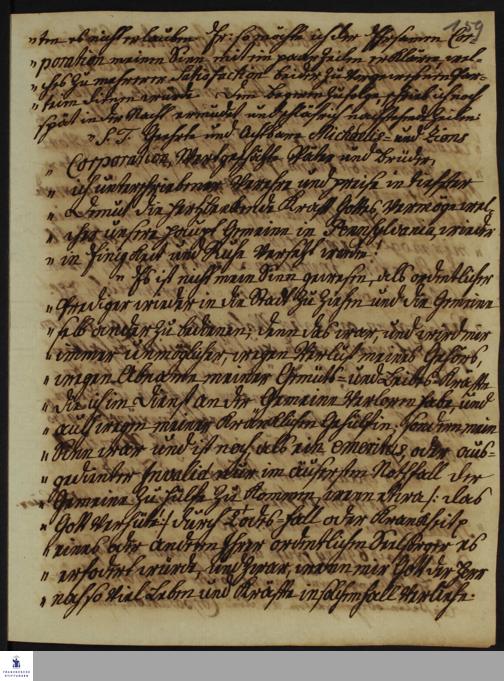 159
"ten es nicht erlauben dh: so möchte ich der Ehrsamen Cor-
"poration meinen Sinn mit ein paar Zeilen erklären, wel-
"ches zu mehrerer Satisfaction beider zu vereinigenden Par-
"theien dienen würde. Dem begeren zufolge schrieb ich noch
spät in der Nacht ermüdet und schläfrig nachstehende Zeilen:
" S. T. Geehrte und Achtbare Michaelis= und Zions
" Corporation, Werthgeschätzte Väter und Brüder,
" ich unterschriebener Verehre und preise in tiefster
" Demuth die herzlenkende Kraft Gottes vermöge wel-
" cher unsre Haupt Gemeine in Pensylvania, wieder
" in Einigkeit und Ruhe versetzt worden!
" Es ist nicht mein Sinn gewesen, als ordentlicher
" Prediger wieder in die Stadt zu ziehen und die Gemeine
" selbander zu bedienen; denn das war, und wird mir
" immer unmöglicher, wegen Verlust meines Gehörs
" wegen Abname meiner Gemüths= und Leibes Kräfte
" die ich im Dienst an der Gemeine verloren habe, und
" auch wegen meiner kränklichen Gehülfin, sondern mein
" Sinn war und ist noch als ein emeritus oder aus-
" gedienter Invalid nur im äusersten Nothfall der
" Gemeine zu Hülfe zu kommen, wenn etwa /: das
" Gott verhüte :/ durch Todes=fall oder Krankheit
" eines oder andern Ihrer ordentlichen Seelsorger es
" erfodert würde, und zwar, wenn mir Gott der Herr
" noch so viel Leben und Kräfte in solchem fall verliehe.
FRANCKESCHE
STIFTUNGEN